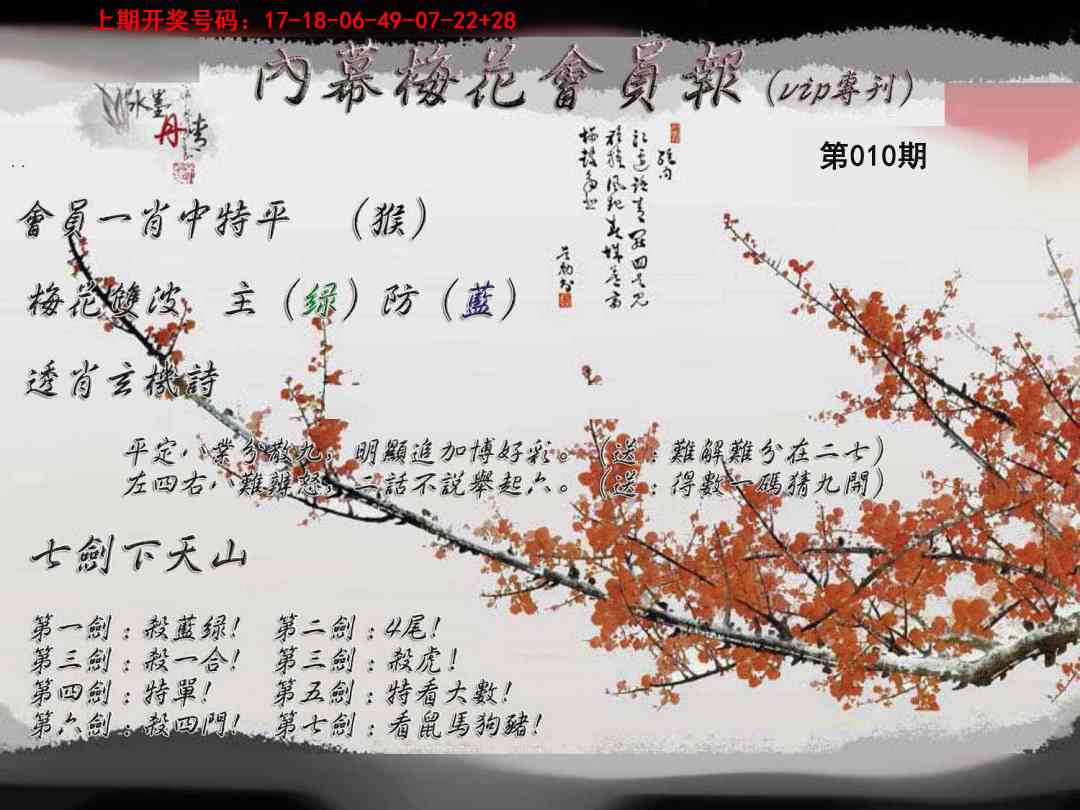 上期开奖号码：17-18-06-49-07-22+28
內幕梅花會員報（vip專刊）
水墨
丹青
第010期
..
會員一肖中特平 （猴）
梅花雙波 主（绿）防（藍）
透肖玄機詩
平定八業分散九，明顯追加博好彩。（送：難解難分在二七）
左四右八難辨怒，二話不說舉起六。（送：得數一碼猜九開）
七劍下天山
第一劍：殺藍绿！ 第二劍：4尾！
第三劍：殺一合！ 第三劍：殺虎！
第四劍：特單！ 第五劍：特看大數！
第六劍：殺四門！ 第七劍：看鼠馬狗豬！